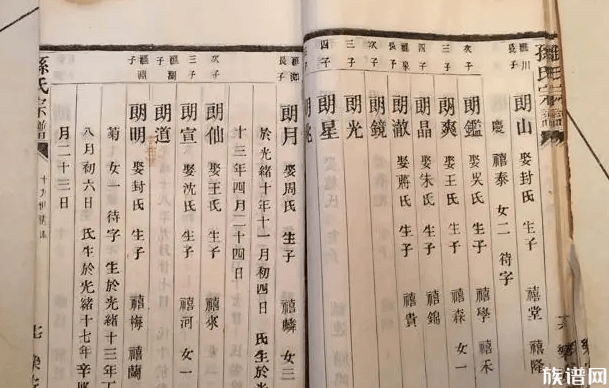 孫氏宗譜
長子 朗山 娶封氏 生子 禧堂 禧隆
慶 禧泰 女二 待字
次子 朗鑑 娶吳氏 生子 禧學 禧禾
三子 朗爽 娶王氏 生子 禧森 女一
四子 朗晶 娶朱氏 生子 禧錦
福泉 子 朗澈 娶蔣氏 生子 禧貴
次子 朗鏡
三子 朗光
四子 朗星
長子 朗月 娶周氏 生子 禧麟 女三
於光緒十年十一月初四日 氏生於光
十三年四月二十四日
次子 朗仙 娶王氏 生子 禧來
三子 朗宣 娶沈氏 生子 禧河 女一
福湖 子 朗道
子 朗明 娶封氏 生子 禧梅 禧蘭
菊 女一 待字 生於光緒十三年丁
八月初六日 氏生於光緒十七年辛
月二十三日
孫氏宗譜
族谱网